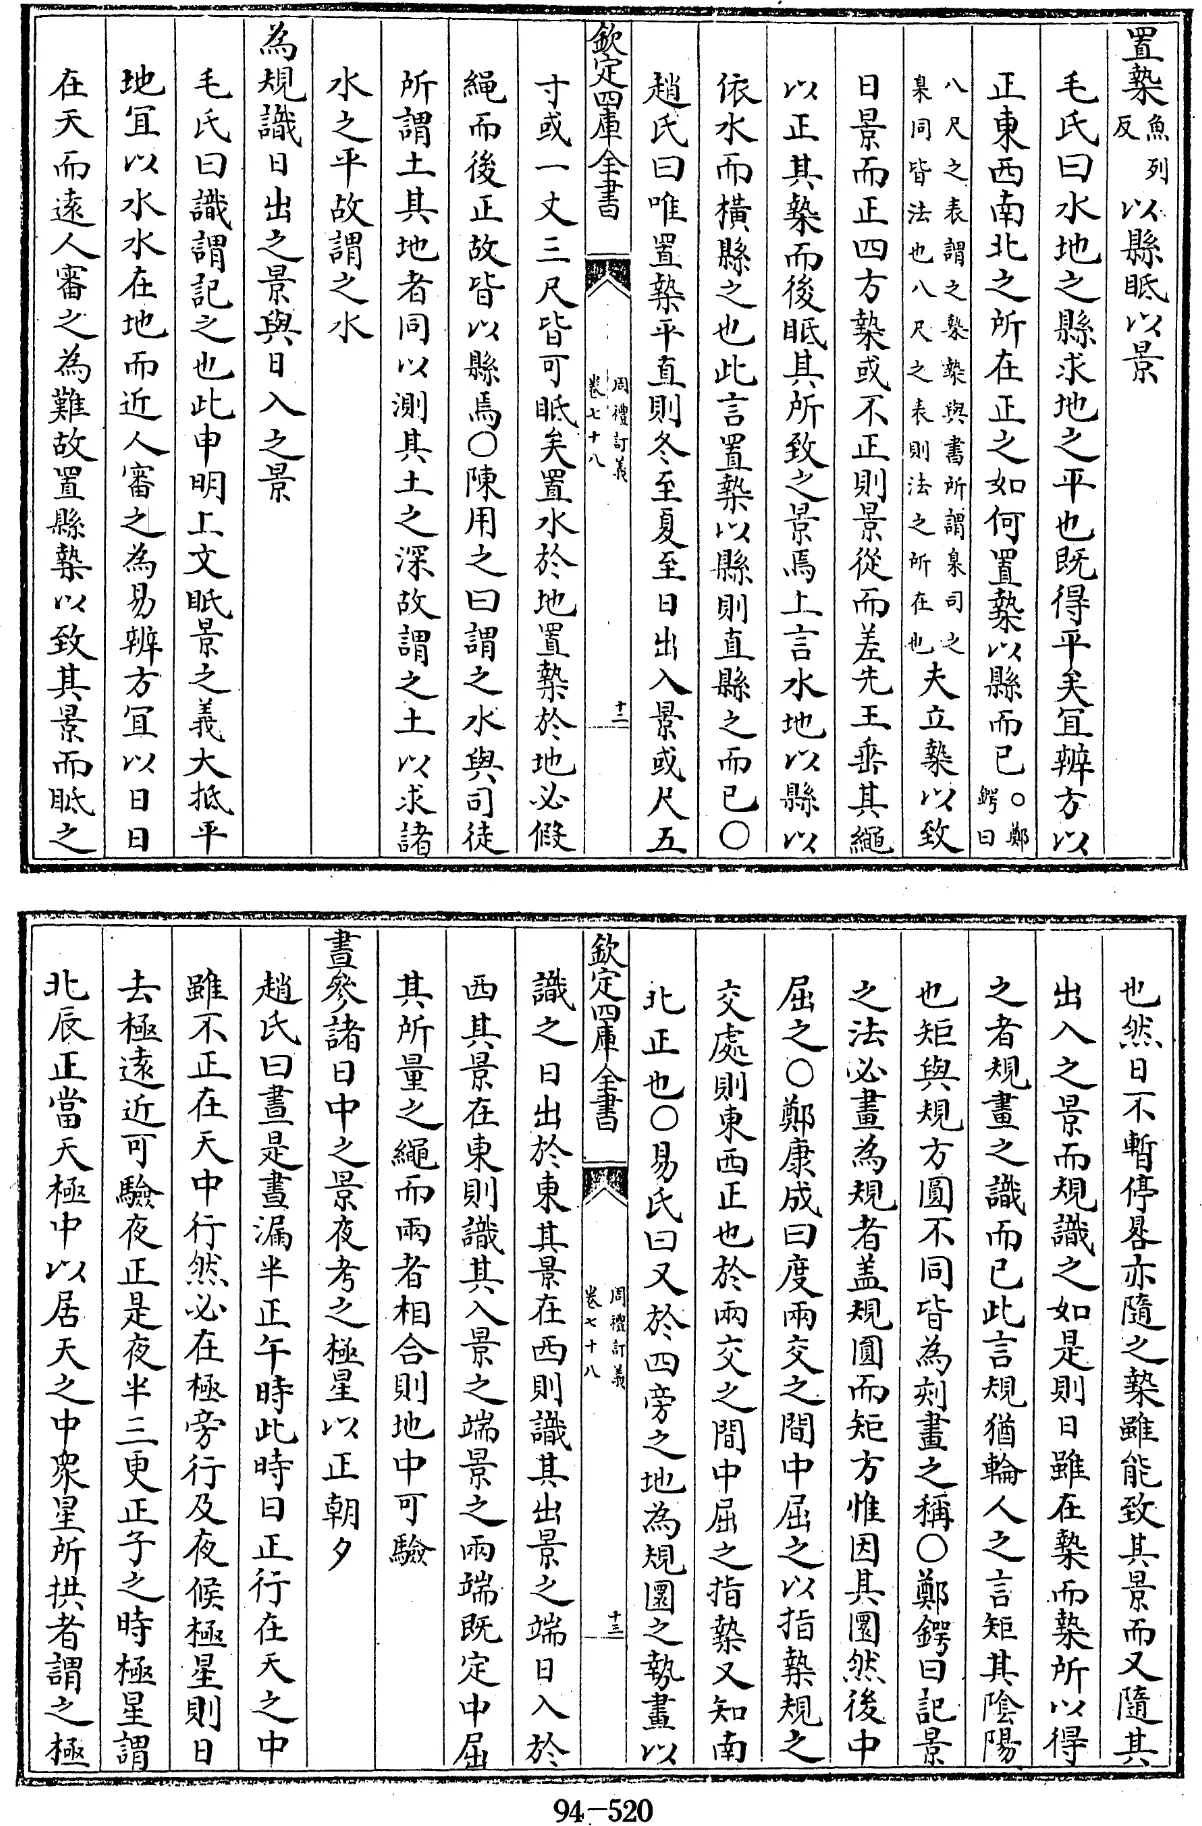 置槷魚列反以縣眡以景
毛氏曰水地之縣求地之平也既得平矣宜辨方以
正東西南北之所在正之如何置槷以縣而已○鄭鍔曰
八尺之表謂之槷槷與書所謂臬司之臬同皆法也八尺之表則法之所在也夫立槷以致
日景而正四方槷或不正則景從而差先王垂其繩
以正其槷而後眡其所致之景焉上言水地以縣以
依水而橫縣之也此言置槷以縣則直縣之而已○
趙氏曰唯置槷平直則冬至夏至日出入景或尺五
欽定四庫全書
周禮訂義
卷七十八
十二
寸或一丈三尺皆可眡矣置水於地置槷於地必假
繩而後正故皆以縣焉○陳用之曰謂之水與司徒
所謂土其地者同以測其土之深故謂之土以求諸
水之平故謂之水
為規識日出之景與日入之景
毛氏曰識謂記之也此申明上文眡景之義大抵平
地宜以水水在地而近人審之為易辨方宜以日日
在天而遠人審之為難故置縣槷以致其景而眡之
也然日不暫停晷亦隨之槷雖能致其景而又隨其
出入之景而規識之如是則日雖在槷而槷所以得
之者規畫之識而已此言規猶輪人之言矩其陰陽
也矩與規方圓不同皆為刻畫之稱○鄭鍔曰記景
之法必畫為規者盖規圓而矩方惟因其圜然後中
屈之○鄭康成曰度兩交之間中屈之以指槷規之
交處則東西正也於兩交之間中屈之指槷又知南
北正也○易氏曰又於四旁之地為規圜之勢畫以
欽定四庫全書
周禮訂義
卷七十八
十三
識之日出於東其景在西則識其出景之端日入於
西其景在東則識其入景之端景之兩端既定中屈
其所量之繩而兩者相合則地中可驗
晝參諸日中之景夜考之極星以正朝夕
趙氏曰晝是晝漏半正午時此時日正行在天之中
雖不正在天中行然必在極旁行及夜候極星則日
去極遠近可驗夜正是夜半三更正子之時極星謂
北辰正當天極中以居天之中衆星所拱者謂之極
94-520